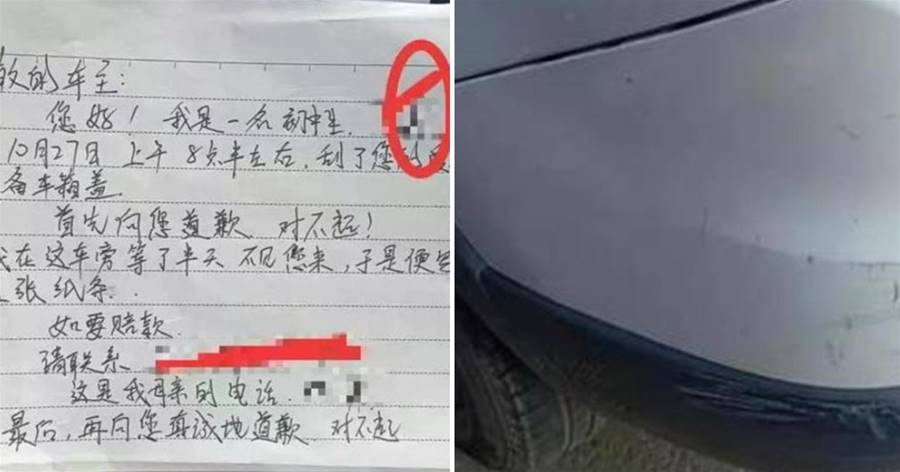 敬的车主:
您好! 我是一名初中生.
10月27日 上午 8点半左右, 刮了您的
备车箱盖.
首先向您道歉 对不起!
我在这车旁等了半天 不见您来, 于是便写
张纸条.
如要赔款.
请联系
这是我母亲的电话.
最后, 再向您真诚地道歉 对不起